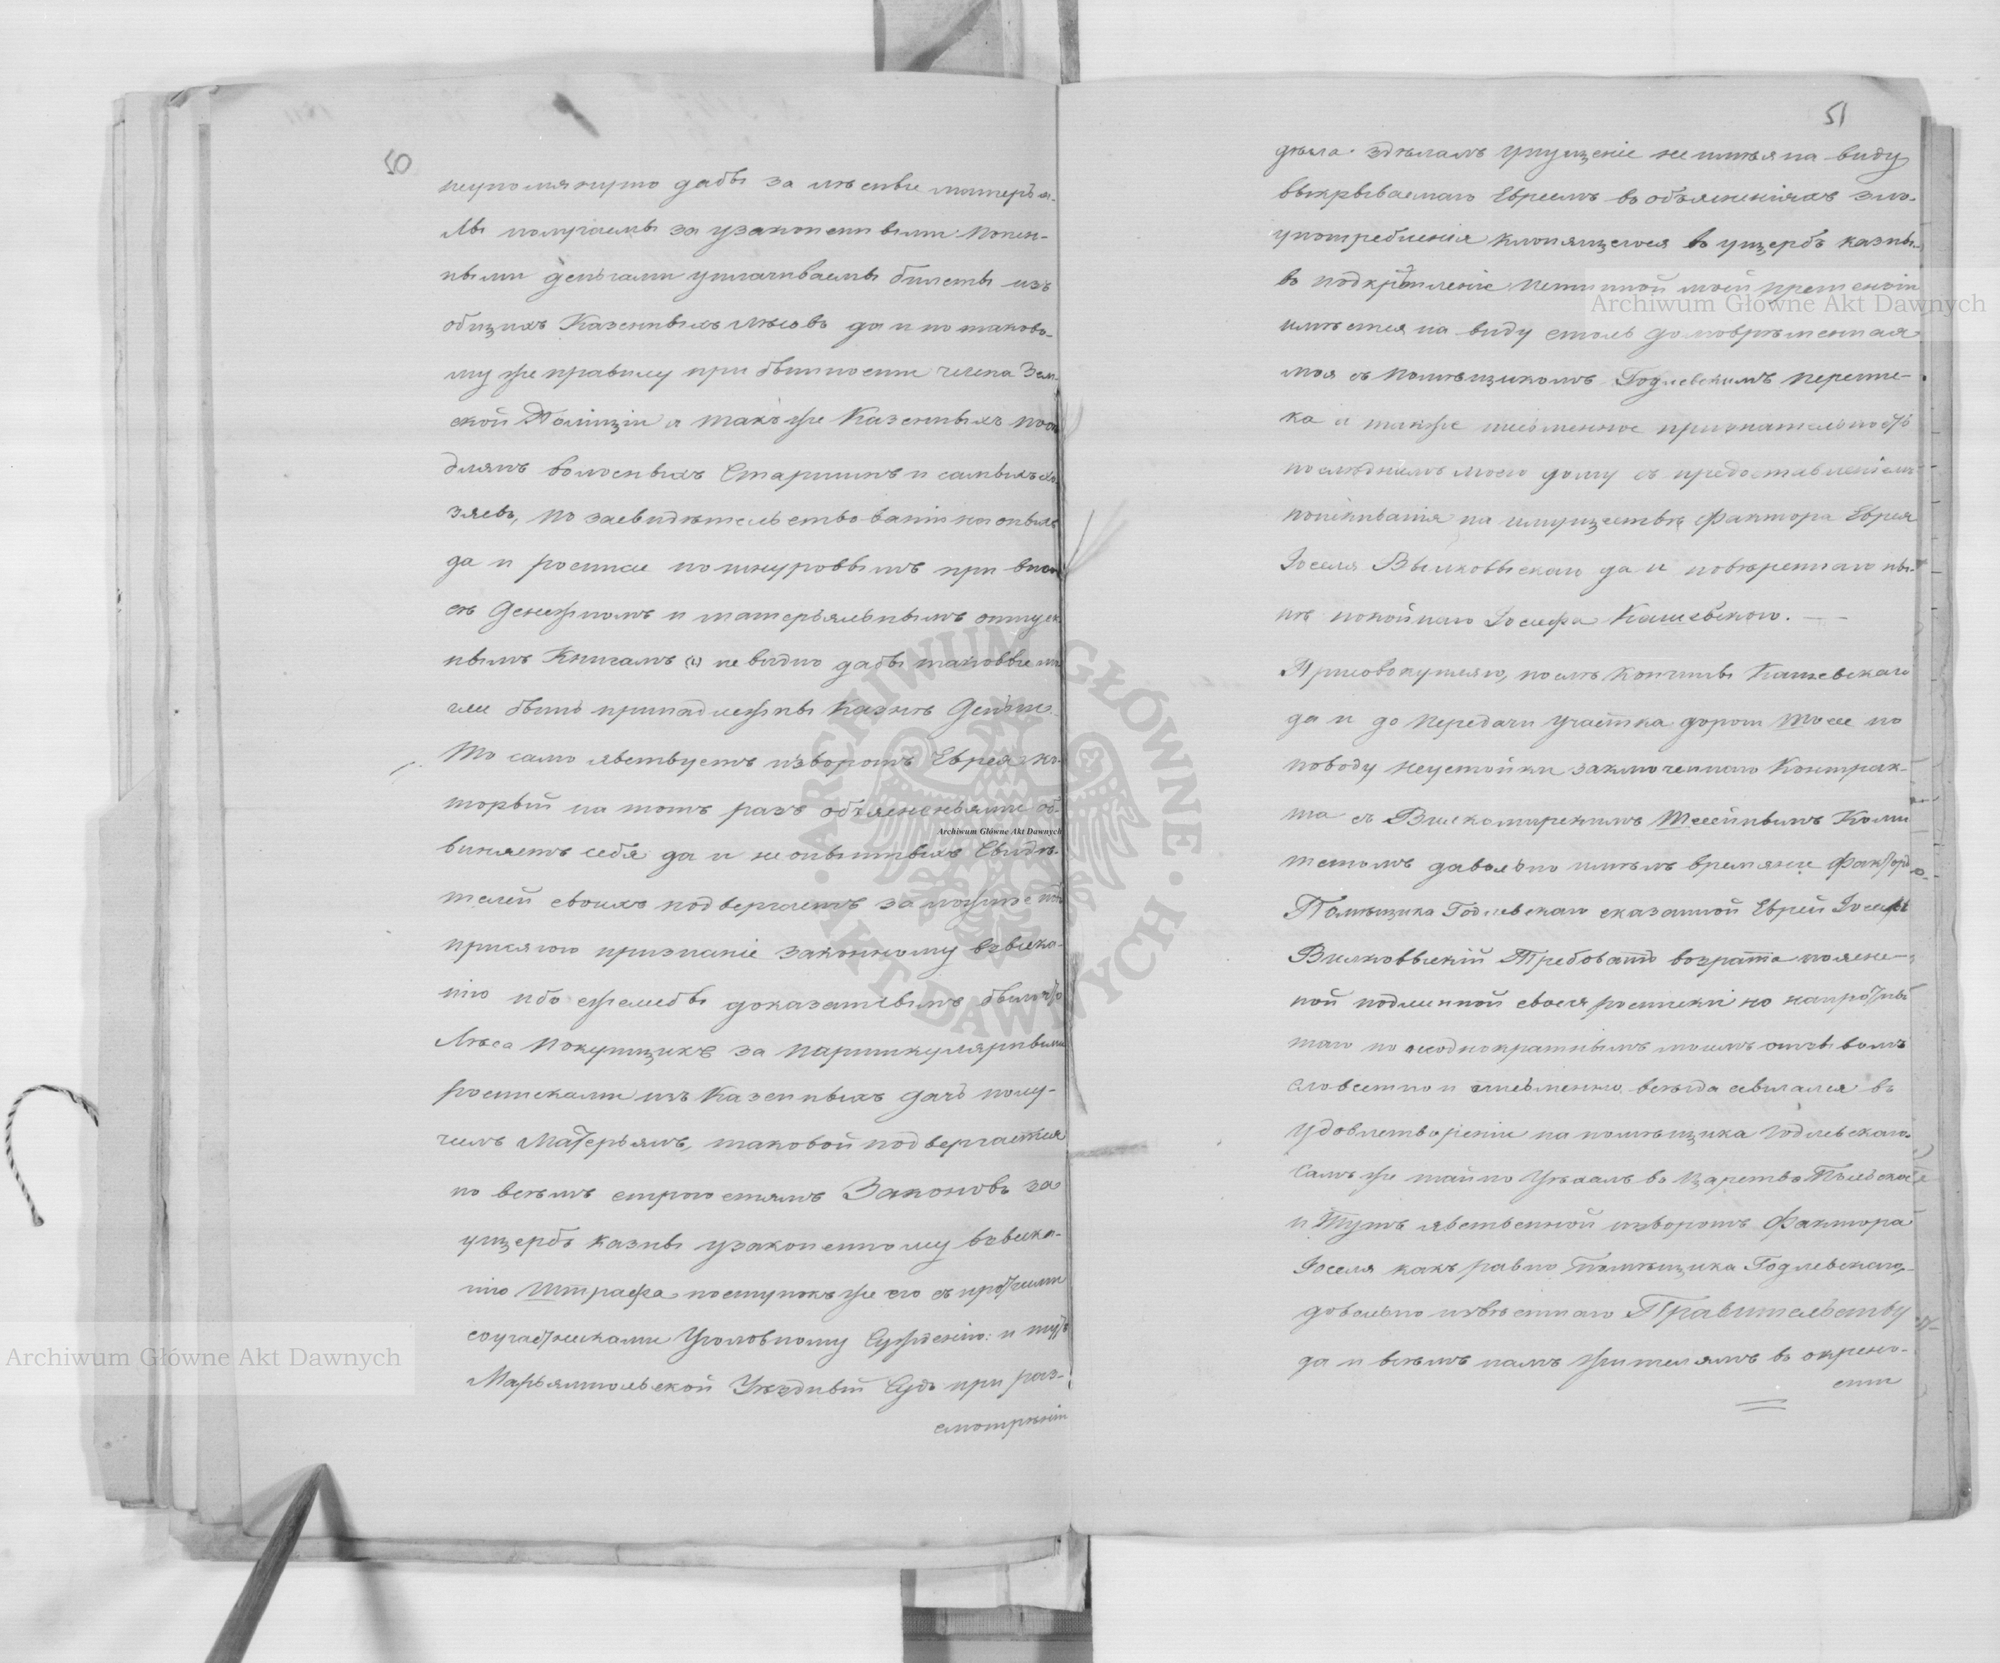 50
неупомянуто дабы за лѣсные матерья-
лы получаемы за узаконенными попен-
ными деньгами уплачиваемы билеты изъ
общихъ Казенныхъ лѣсовъ да и по таково-
му же правилу при бытности члена Зем-
ской Полиціи и также Казенныхъ
волосныхъ Старшинъ и самыхъ хо-
зяевъ, по засвидѣтельствованіи
да и росписи по шнуровымъ при
съ Денежномъ и матерьяльнымъ отпуск
нымъ Книгамъ не видно дабы таковые
были принадлежны Казнѣ Деньги.
То само явствуетъ изворотъ Еврея ко-
торый на тотъ разъ объясненьями об-
виняетъ себя да и Свидѣ-
телей своихъ подвергаетъ за
присягою признаніе законному взыска-
нію ибо ежелибы доказательнымъ былъ
Лѣса покупщикъ за партикулярными
росписками изъ Казенныхъ дачъ полу-
чилъ Матерьялъ, таковой подвергается
по всѣмъ строгостямъ Законовъ за
ущербъ казны узаконенному взыска-
нію Штрафа поступокъ же его съ прочими
соучастниками Уголовному Сужденію: и тутъ
Марьямпольской Уѣздный Судъ при раз-
смотрѣніи
51
дѣла здѣлалъ упущеніе не имѣя на виду
выкрываемаго Евреемъ въ объясненіяхъ зло-
употребленія клонящегося въ ущербъ казны
въ подкрѣпленіе истинной моей претензіи
имѣется на виду столь долговрѣменная
моя съ помѣщикомъ Годлевскимъ перепис-
ка и также письменное признательность
послѣднимъ моего дому съ предоставленіемъ
поискиванія на имуществѣ фактора Еврея
Іоселя Вылковыскаго да и повѣреннаго ны-
нѣ покойнаго Іосифа Кашевского. —
Присовокупляю, послѣ кончины Кашевскаго
да и до передачи участка дорогъ Шосе по
поводу неустойки заключеннаго Контрак-
та съ Вилкомирскимъ Шосейнымъ Коми
тетомъ давольно имѣлъ времянъ Факторъ
Помѣщика Годлевскаго сказанной Еврей Іосель
Вилковыскій Требовать возрата
ной подлинной своея росписки но напротивъ
таго по неоднократнымъ моимъ отзывомъ
словестно и письменно всегда ссылался въ
Удовлетвореніи на помѣщика Годлевскаго.
Самъ же тайно Уѣхалъ въ Царство Польское
и Тутъ явственной изворотъ Фактора
Іоселя какъ равно Помѣщика Годлевскаго,
довольно извѣстнаго Правительству
да и всѣмъ намъ жителямъ въ окресно-
сти
Archiwum Główne Akt Dawnych
Archiwum Główne Akt Dawnych
Archiwum Główne Akt Dawnych
ARCHIWUM GŁÓWNE AKT DAWNYCH